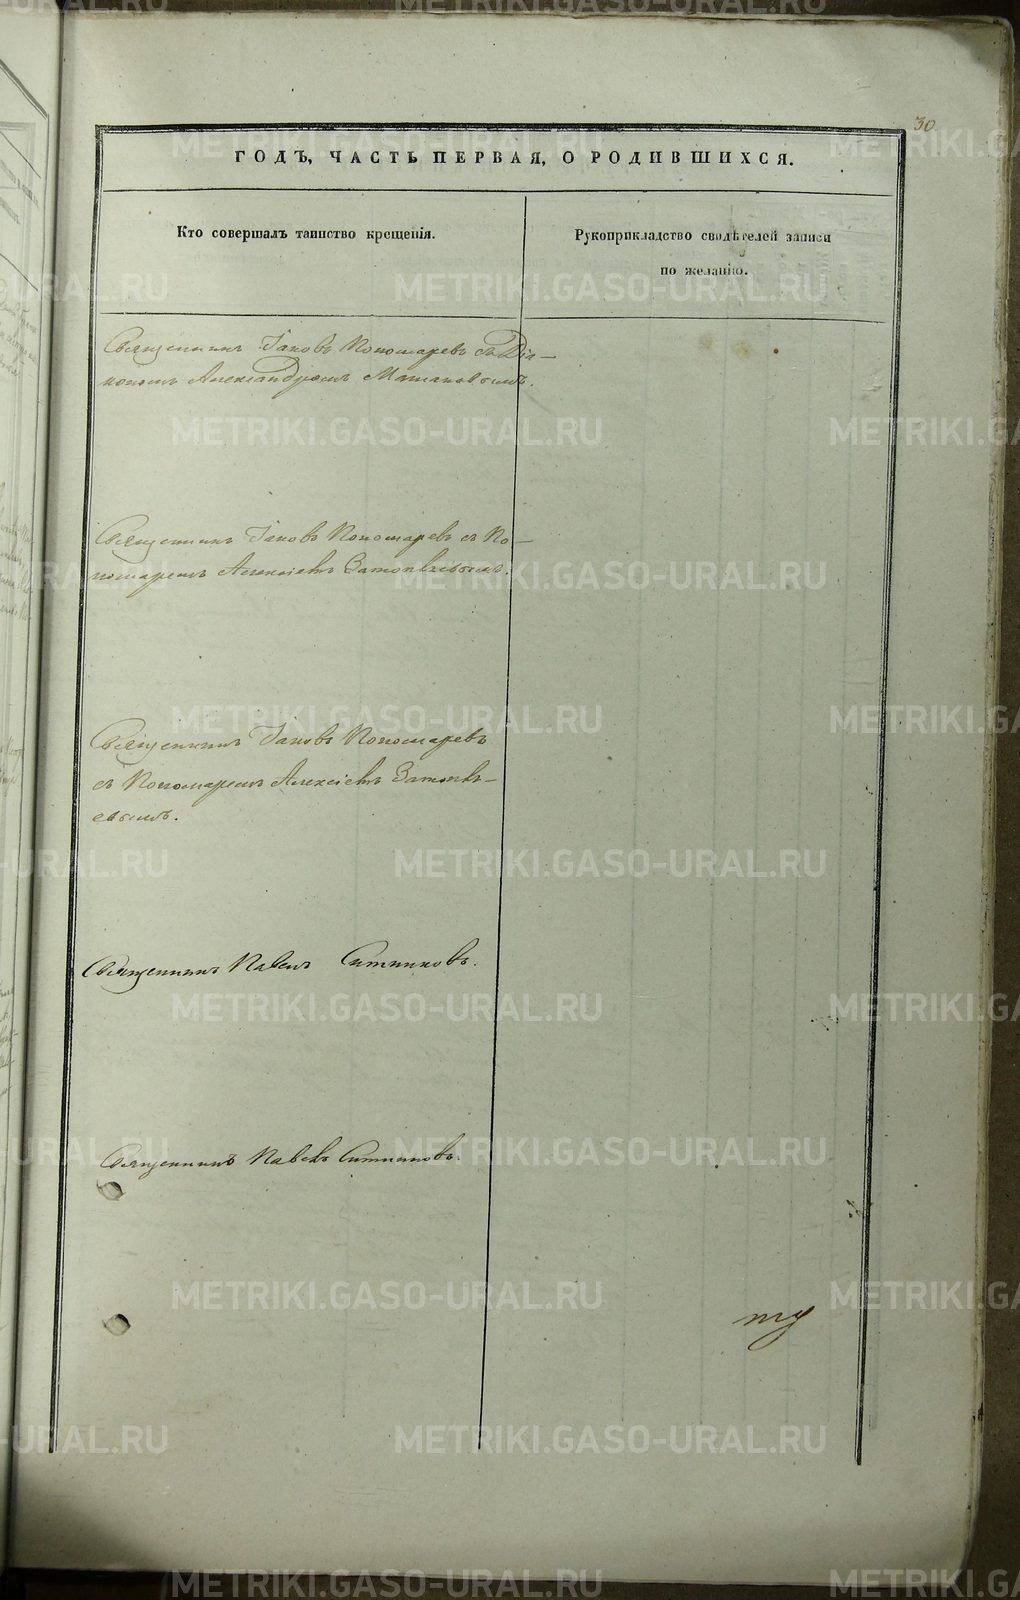 30
ГОДЪ, ЧАСТЬ ПЕРВАЯ, О РОДИВШИХСЯ.
Кто совершалъ таинство крещенія.
Рукоприкладство свидѣтелей записи
по желанію.
Священникъ Іаковъ Пономаревъ съ Діа-
кономъ Александромъ
Священникъ Іаковъ Пономаревъ съ По-
номаремъ Алексіемъ
Священникъ Іаковъ Пономаревъ
съ Пономаремъ Алексіемъ
Священникъ Павелъ Ситниковъ.
Священникъ Павелъ Ситниковъ.
METRIKI.GASO-URAL.RU